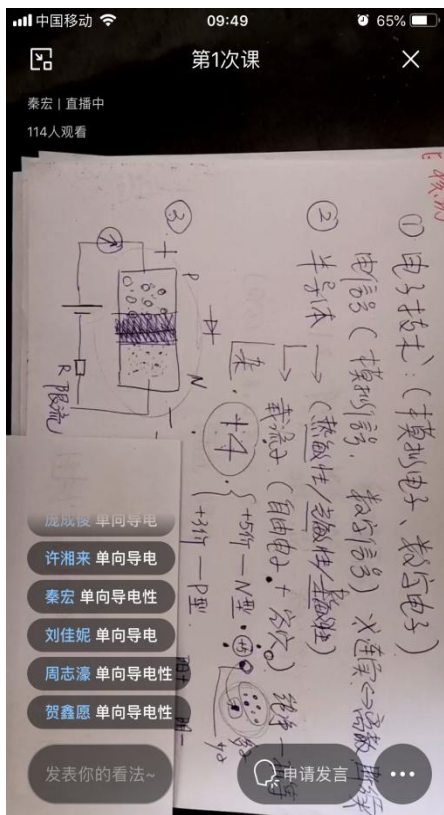 中国移动
09:49
65%
第1次课
秦宏 | 直播中
114人观看
① 电子技术：(模拟电子、数字电子)
电信号 (模拟信号. 数字信号)
② 半导体 → (热敏性/光敏性/掺杂性)
→ 载流子 (自由电子 + 空穴)
+4
+5价 — N型
+3价 — P型.
+5
③
+ P
N -
R 限流
庞成俊 单向导电
许湘来 单向导电
秦宏 单向导电性
刘佳妮 单向导电
周志濠 单向导电性
贺鑫愿 单向导电性
发表你的看法~
申请发言